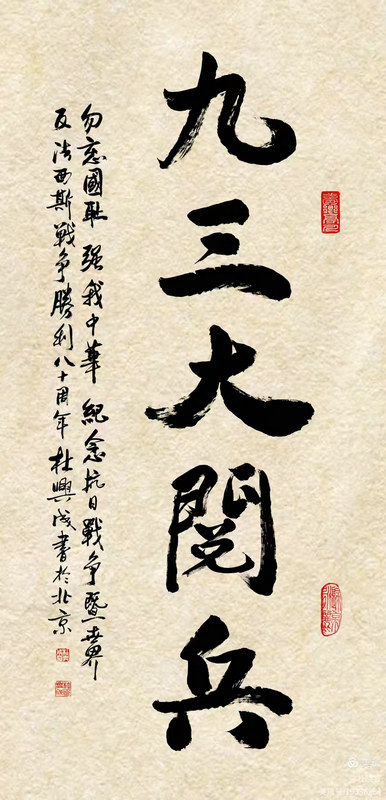 九三大閱兵
勿忘國耻 强我中華 紀念抗日戰争暨世界
反法西斯戰争勝利八十周年 杜興成書於北京